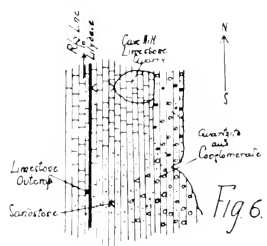 Rly Line
to
Lilydale
Cave Hill
Limestone
Quarry
N
S
Quartzite
and
Conglomerate
Limestone
Outcrop
Sandstone
Fig. 6.